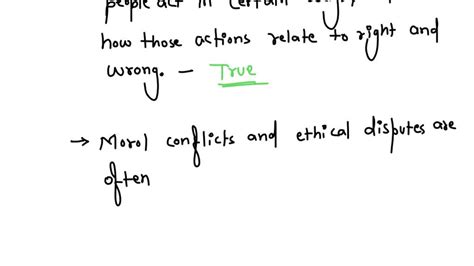 people act in certain
how those actions relate to right and
wrong. - True
→ Moral conflicts and ethical disputes are
often